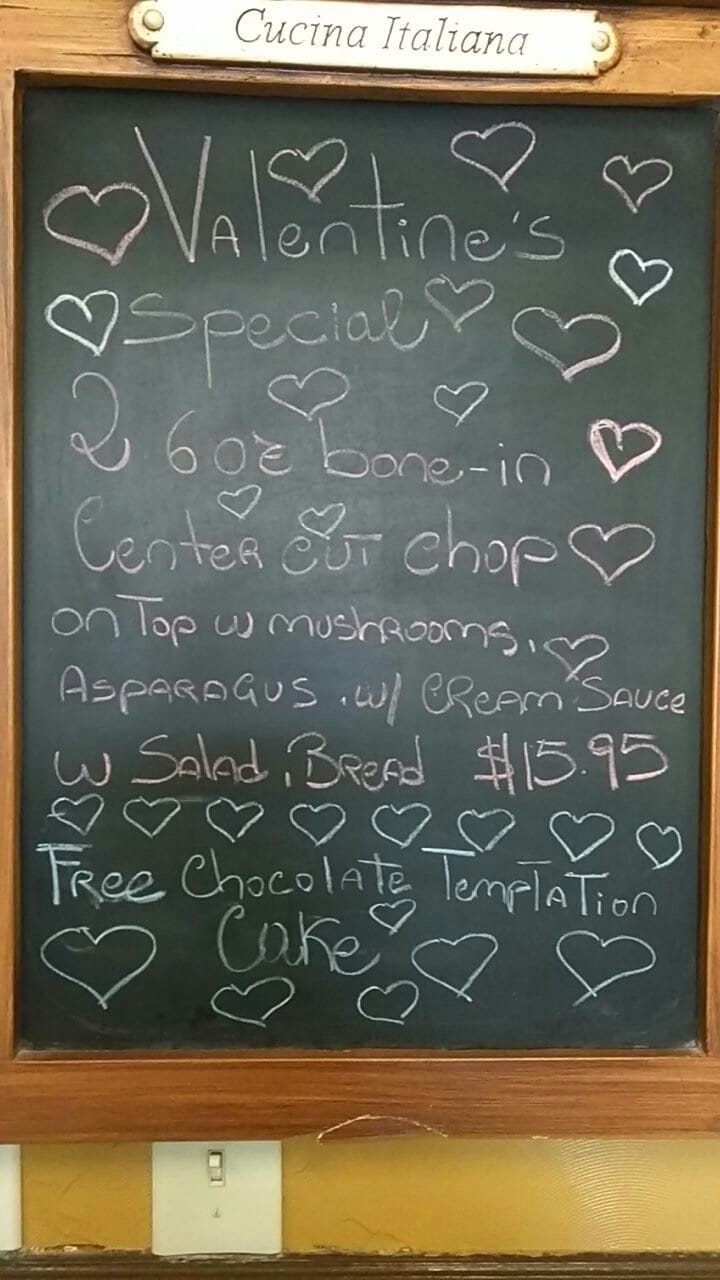 Cucina Italiana
Valentine's
Special
2 6oz bone-in
Center cut chop
on Top w mushrooms.
Asparagus . w/ Cream Sauce
w Salad, Bread $15.95
Free Chocolate Temptation
Cake